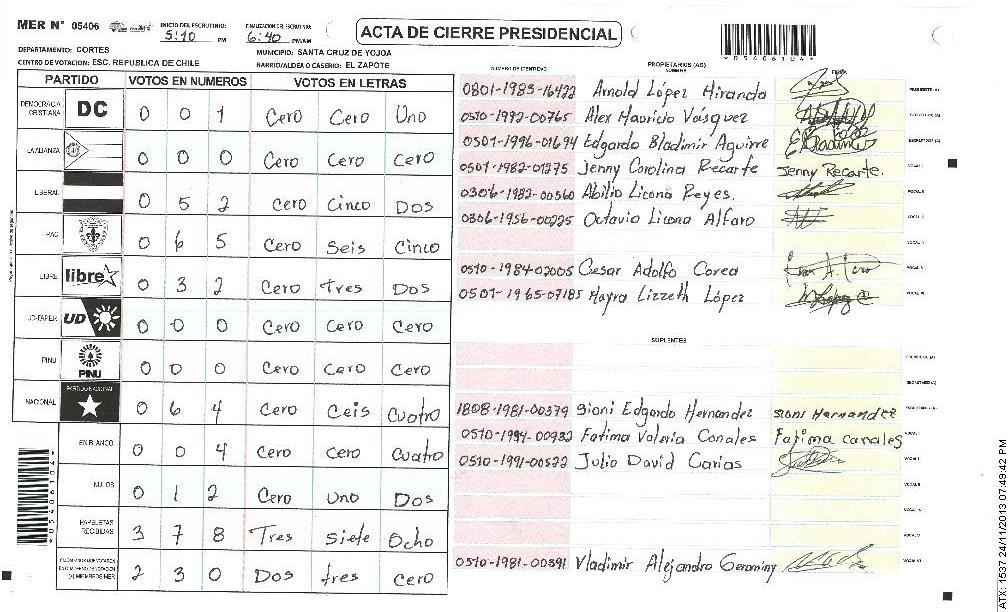 MER N° 05406 INICIO DEL ESCRUTINIO: 5:10 PM FINALIZACION DEL ESCRUTINIO: 6:40 PM/AM
ACTA DE CIERRE PRESIDENCIAL
*05406104*
DEPARTAMENTO: CORTES MUNICIPIO: SANTA CRUZ DE YOJOA
CENTRO DE VOTACION: ESC. REPUBLICA DE CHILE BARRIO/ALDEA O CASERIO: EL ZAPOTE
PARTIDO VOTOS EN NUMEROS VOTOS EN LETRAS
DEMOCRACIA CRISTIANA DC 0 0 1 Cero Cero Uno
LA ALIANZA 0 0 0 Cero Cero Cero
LIBERAL 0 5 2 Cero Cinco Dos
PAC 0 6 5 Cero Seis Cinco
LIBRE libre 0 3 2 Cero Tres Dos
UD-FAPER UD 0 0 0 Cero Cero Cero
PINU PINU 0 0 0 Cero Cero Cero
NACIONAL PARTIDO NACIONAL 0 6 4 Cero Ceis Cuatro
EN BLANCO 0 0 4 Cero cero Cuatro
NULOS 0 1 2 Cero Uno Dos
PAPELETAS RECIBIDAS 3 7 8 Tres Siete Ocho
2 3 0 Dos tres cero
NUMERO DE IDENTIDAD PROPIETARIOS (AS) NOMBRES FIRMA
0801-1983-16422 Arnold López Miranda PRESIDENTE (A)
0510-1992-00765 Alex Mauricio Vasquez
0501-1996-01694 Edgardo Bladimir Aguirre
0501-1982-01275 Jenny Carolina Recarte Jenny Recarte.
0306-1982-00560 Abilio Licona Reyes.
0306-1956-00225 Octavio Licona Alfaro
0510-1984-02005 Cesar Adolfo Corea
0501-1965-07185 Mayra Lizzeth López
SUPLENTES
1808-1981-00379 Sioni Edgardo Hernandez Sioni Hernandez
0510-1994-00932 Fatima Valeria Canales Fatima canales
0510-1991-00522 Julio David Carias
0510-1981-00391 Vladimir Alejandro Geronimy
*05406104*
ATX: 1537 24/11/2013 07:49:42 PM